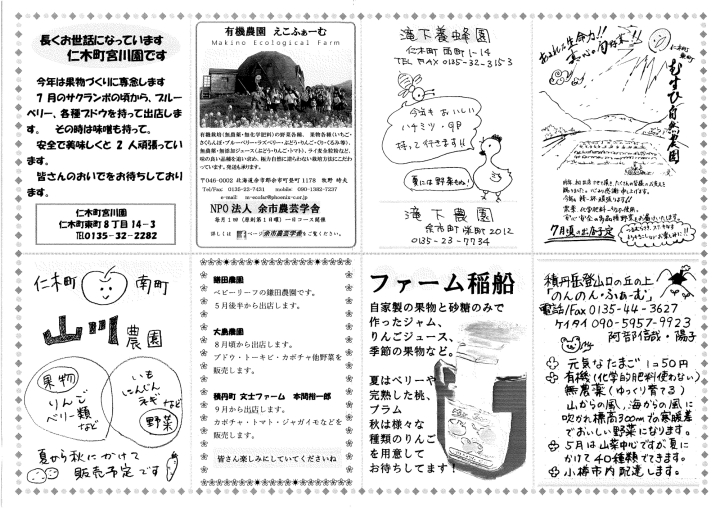 長くお世話になっています
仁木町宮川園です
今年は果物づくりに専念します
7月のサクランボの頃から、ブルー
ベリー、各種ブドウを持って出店しま
す。　その時は味噌も持って。
安全で美味しくと 2 人頑張ってい
ます。
皆さんのおいでをお待ちしており
ます。
仁木町宮川園
仁木町東町8丁目14－3
TEL0135-32-2282
有機農園　えこふぁーむ
Makino Ecological Farm
有機栽培(無農薬・無化学肥料)の野菜各種、果物各種(いちご・
さくらんぼ・ブルーベリー・ラズベリー・ぶどう・りんご・くり・くるみ等)、
無農薬・無添加ジュース(ぶどう・りんご・トマト)、ライ麦全粒粉など、
味の良い品種を追い求め、極力自然に逆らわない栽培方法にこだわ
っています。発送も承ります。
〒046-0002 北海道余市郡余市町登町1178 牧野 時夫
Tel/Fax 0135-22-7431 mobile 090-1382-7237
NPO法人 余市農芸学舎
毎月1回(原則第1日曜)一日コース開催
詳しくは ページ余市農芸学舎をご覧ください。
滝下養蜂園
仁木町 西町1-14
TEL FAX 0135-32-3153
今年も おいしい
ハチミツ・卵
持って行きます!!
夏には野菜もね!
滝下農園
余市町栄町2012
0135-23-7734
あふれる生命力!!
仁木町
東町
むすび自然農園
7月頃の出店予定
仁木町 南町
山川農園
果物
りんご
ベリー類
など
いも
にんじん
ネギ など
野菜
夏から秋にかけて
販売予定です
鎌田農園
ベビーリーフの鎌田農園です。
5月後半から出店します。
大島農園
8月頃から出店します。
ブドウ・トーキビ・カボチャ他野菜を
販売します。
積丹町 文士ファーム 本間裕一郎
9月から出店します。
カボチャ・トマト・ジャガイモなどを
販売します。
皆さん楽しみにしていてくださいね
ファーム稲船
自家製の果物と砂糖のみで
作ったジャム、
りんごジュース、
季節の果物など。
夏はベリーや
完熟した桃、
プラム
秋は様々な
種類のりんご
を用意して
お待ちしてます！
積丹岳登山口の丘の上
「のんのん・ふぁーむ」
電話/Fax 0135-44-3627
ケイタイ 090-5957-9923
阿部信哉・陽子
元気なたまご 1コ50円
有機(化学的肥料使わない)
無農薬(ゆっくり育てる)
山からの風、海からの風に
吹かれ標高300mの寒暖差
でおいしい野菜になります。
5月は山菜中心ですが、夏に
かけて40種類でてきます。
小樽市内配達します。